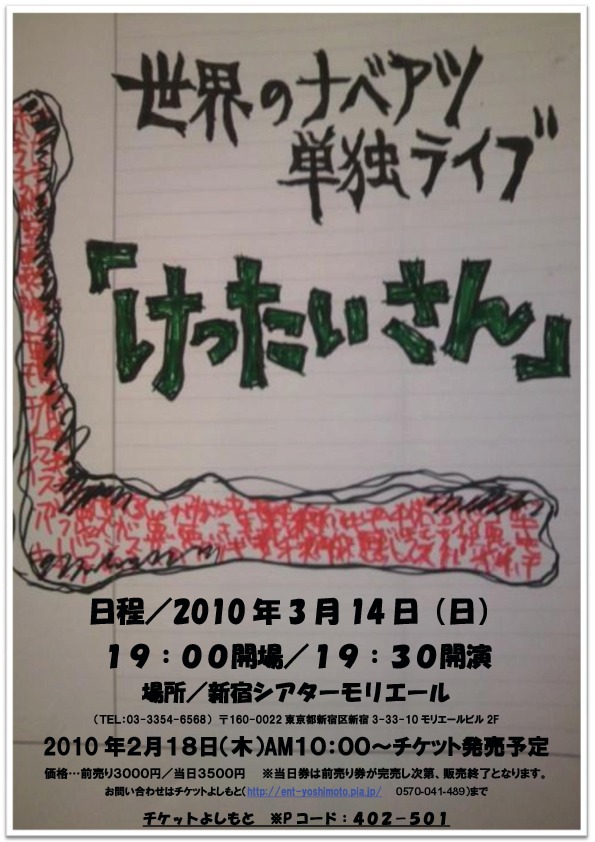 世界のナベアツ
単独ライブ
「けったいさん」
日程／2010年3月14日（日）
１９：００開場／１９：３０開演
場所／新宿シアターモリエール
（TEL:03-3354-6568）〒160-0022 東京都新宿区新宿3-33-10 モリエールビル2F
2010年2月18日（木）AM10：00～チケット発売予定
価格…前売り3000円／当日3500円　※当日券は前売り券が完売し次第、販売終了となります。
お問い合わせはチケットよしもと（http://ent-yoshimoto.pia.jp/　0570-041-489）まで
チケットよしもと　※Ｐコード：４０２－５０１